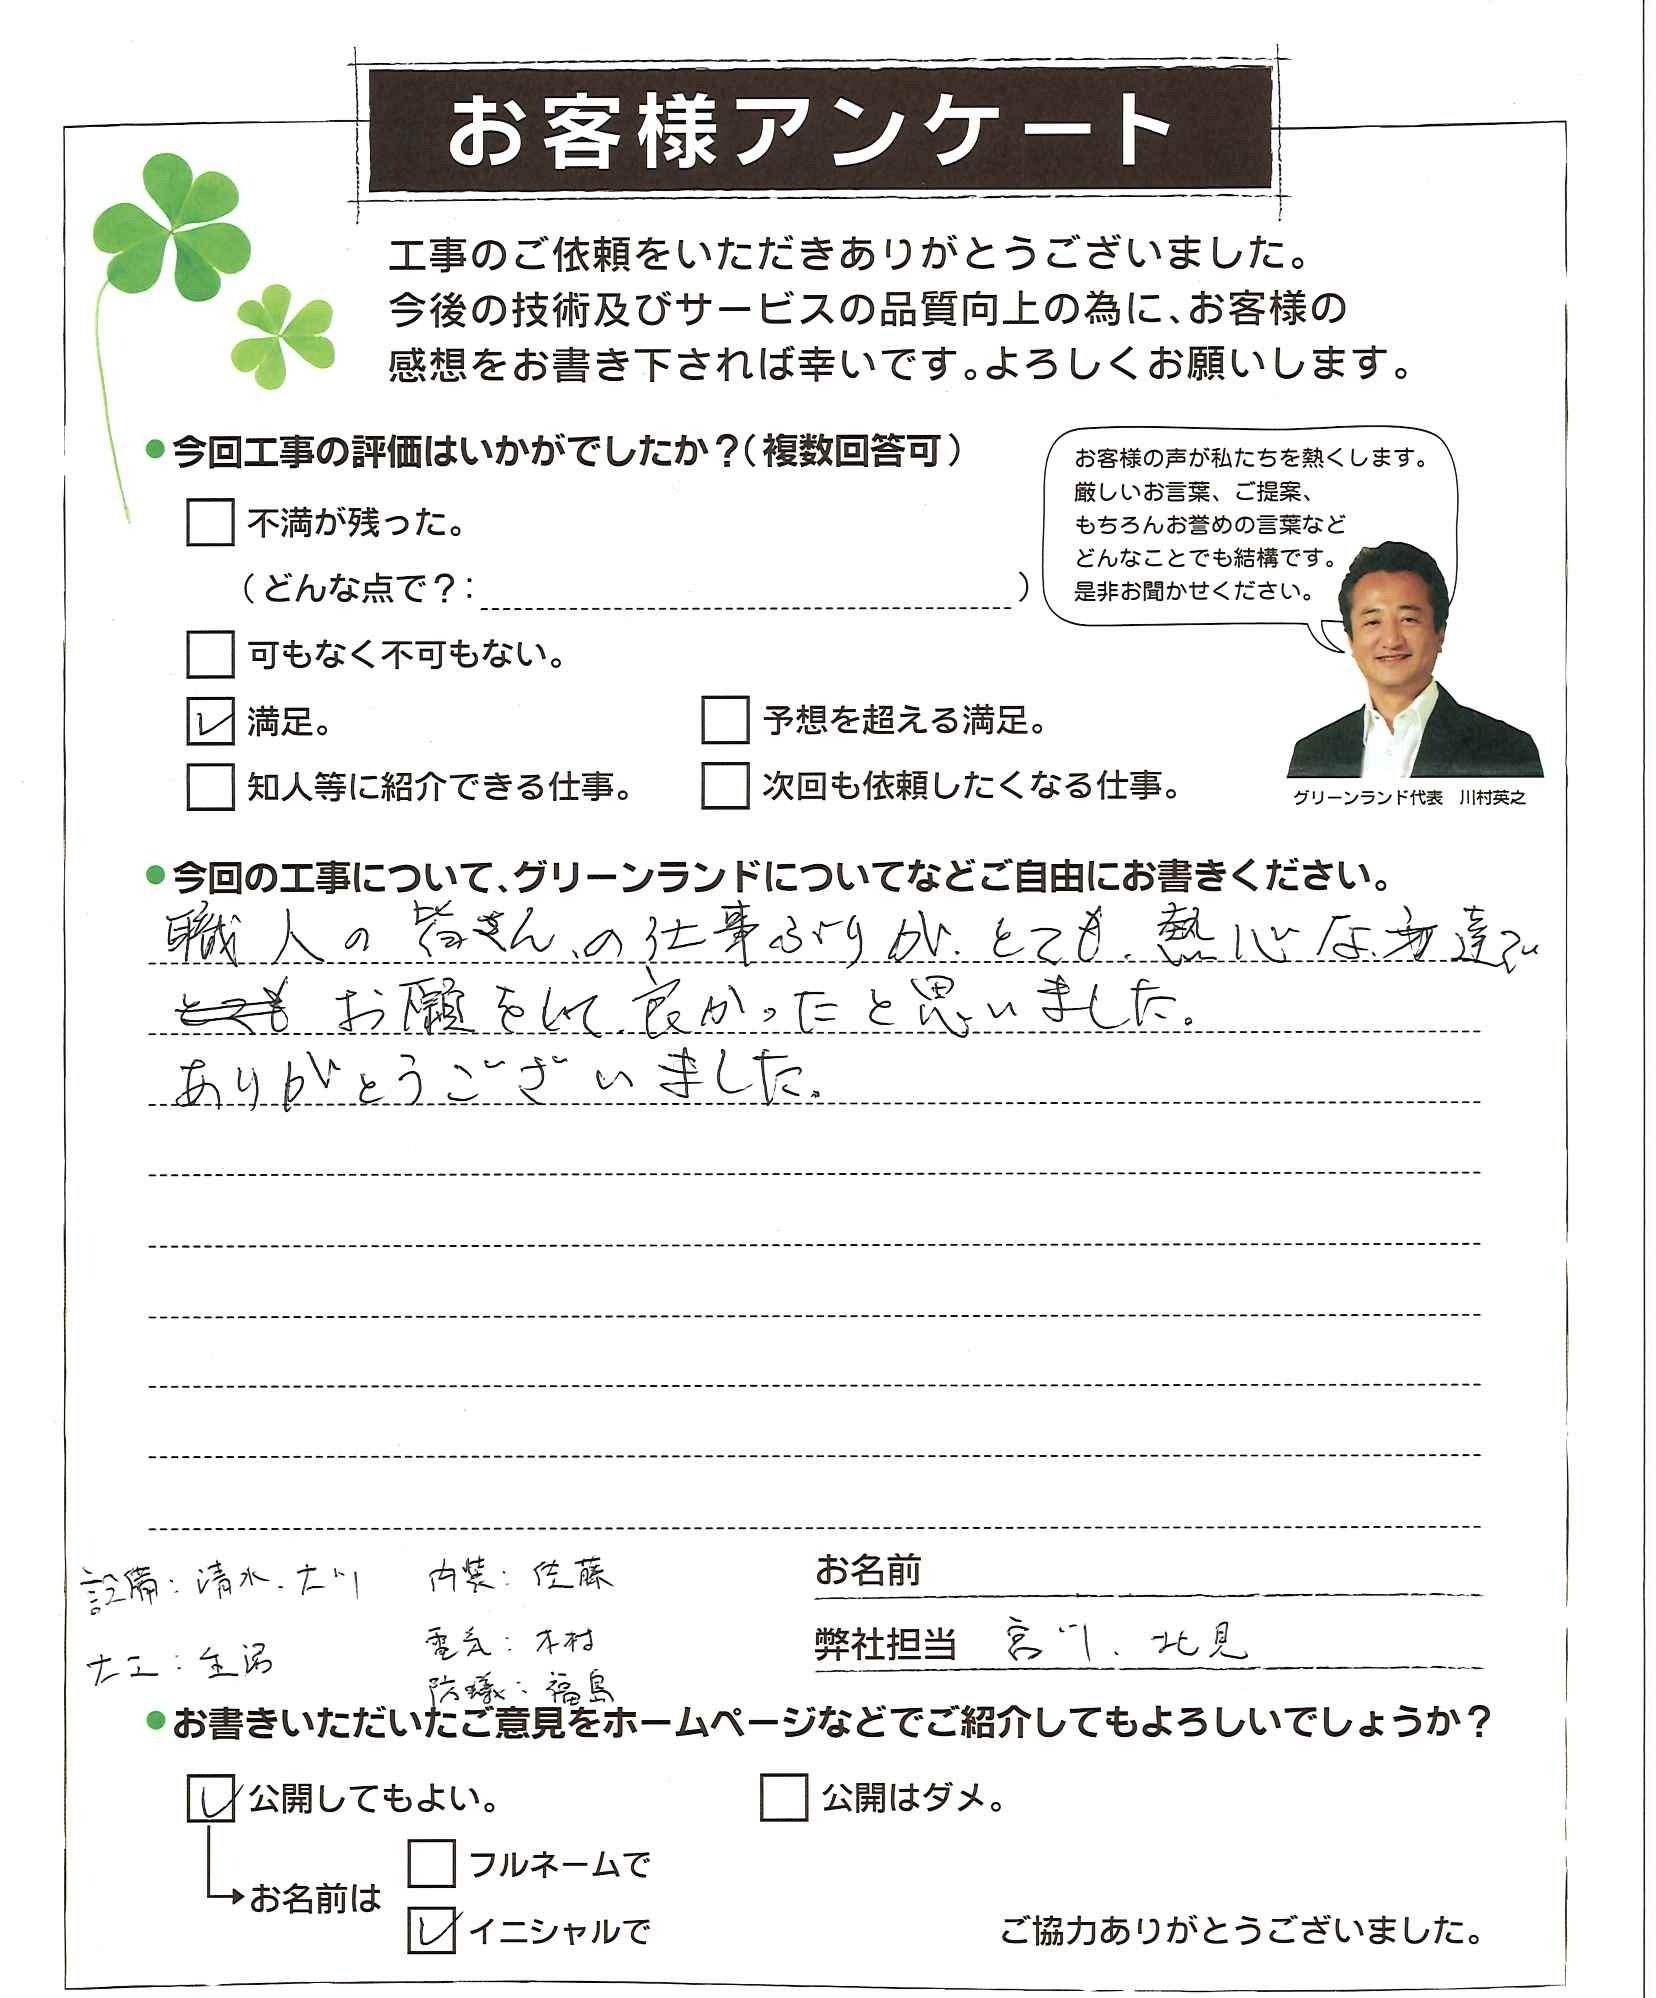 お客様アンケート
工事のご依頼をいただきありがとうございました。
今後の技術及びサービスの品質向上の為に、お客様の
感想をお書き下されば幸いです。よろしくお願いします。
●今回工事の評価はいかがでしたか?(複数回答可)
不満が残った。
(どんな点で?: )
可もなく不可もない。
満足。 予想を超える満足。
知人等に紹介できる仕事。 次回も依頼したくなる仕事。
お客様の声が私たちを熱くします。
厳しいお言葉、ご提案、
もちろんお誉めの言葉など
どんなことでも結構です。
是非お聞かせください。
グリーンランド代表 川村英之
●今回の工事について、グリーンランドについてなどご自由にお書きください。
職人の皆さんの仕事ぶりが、とても熱心な方達で
とても お願をして良かったと思いました。
ありがとうございました。
設備:清水、大川 内装:佐藤
電気:木村
大工:
防蟻:福島
お名前
弊社担当 宮川、北見
●お書きいただいたご意見をホームページなどでご紹介してもよろしいでしょうか?
公開してもよい。 公開はダメ。
お名前は
フルネームで
イニシャルで
ご協力ありがとうございました。